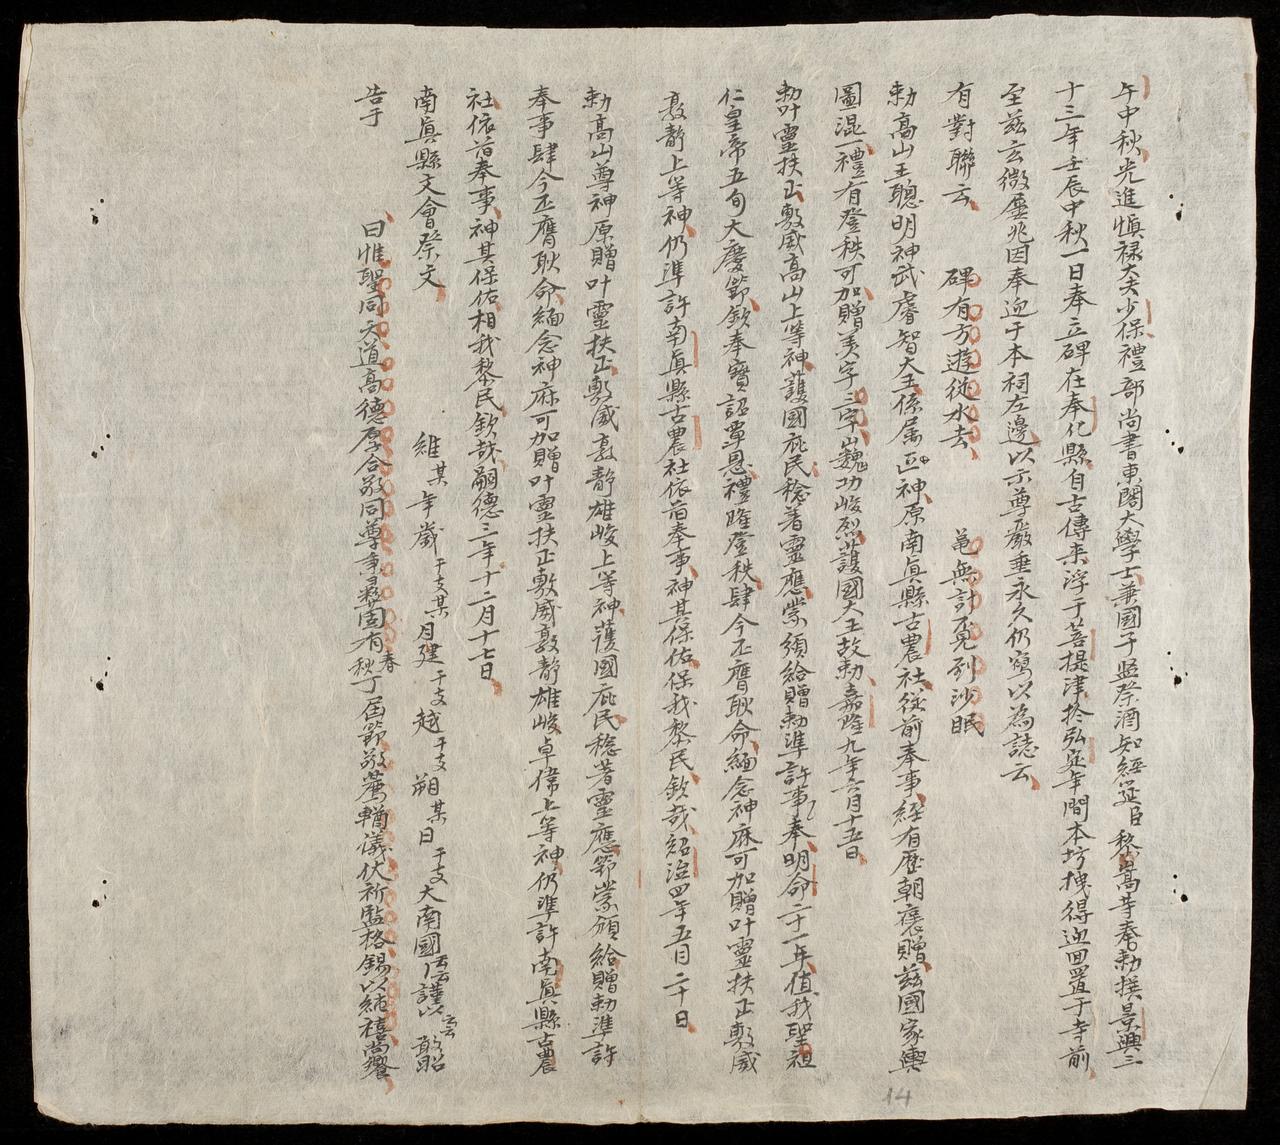 午中秋光進慎祿大夫少保禮部尚書東閣大學士兼國子監祭酒知經筵臣黎嵩等奉勅撰景興三
十三年壬辰中秋一日奉立碑在奉化縣自古傳來浮于菩提津於弘定年間本坊拽得迎回置于寺前
至茲玄微屢兆因奉迎于本祠左邊以示尊嚴垂永久仍寫以為誌云
有對聯云 碑有方遊從水去 龜無計覓到沙眠
勅高山王聰明神武睿智大王係属神原南眞縣古農社從前奉事經有歷朝褒贈茲國家輿
圖混一禮有登秩可加贈美字三字巍功峻烈護國大王故勅嘉隆九年六月十五日
勅叶靈扶正敷威高山上等神護國庇民稔著靈應崇頒給贈勅準許事奉明命二十一年值我聖祖
仁皇帝五旬大慶節欽奉寶詔覃恩禮隆登秩肆今丕膺耿命緬念神庥可加贈叶靈扶正敷威
敦靜上等神仍準許南眞縣古農社依舊奉事神其保佑保我黎民欽哉紹治四年五月二十日
勅高山尊神原贈叶靈扶正敷威敦靜雄峻上等神護國庇民稔著靈應節蒙頒給贈勅準許
奉事肆今丕膺耿命緬念神庥可加贈叶靈扶正敷威敦靜雄峻卓偉上等神仍準許南眞縣古農
社依舊奉事神其保佑相我黎民欽哉嗣德三年十二月十七日
南眞縣文會祭文 維某年歲干支某月建干支越干支朔某日干支大南國云云謹以云云敢昭
告于 曰惟聖同天道高德厚合敬同尊秉彝固有春秋丁屆節敬薦輶儀伏祈監格錫以純禧尚饗
14